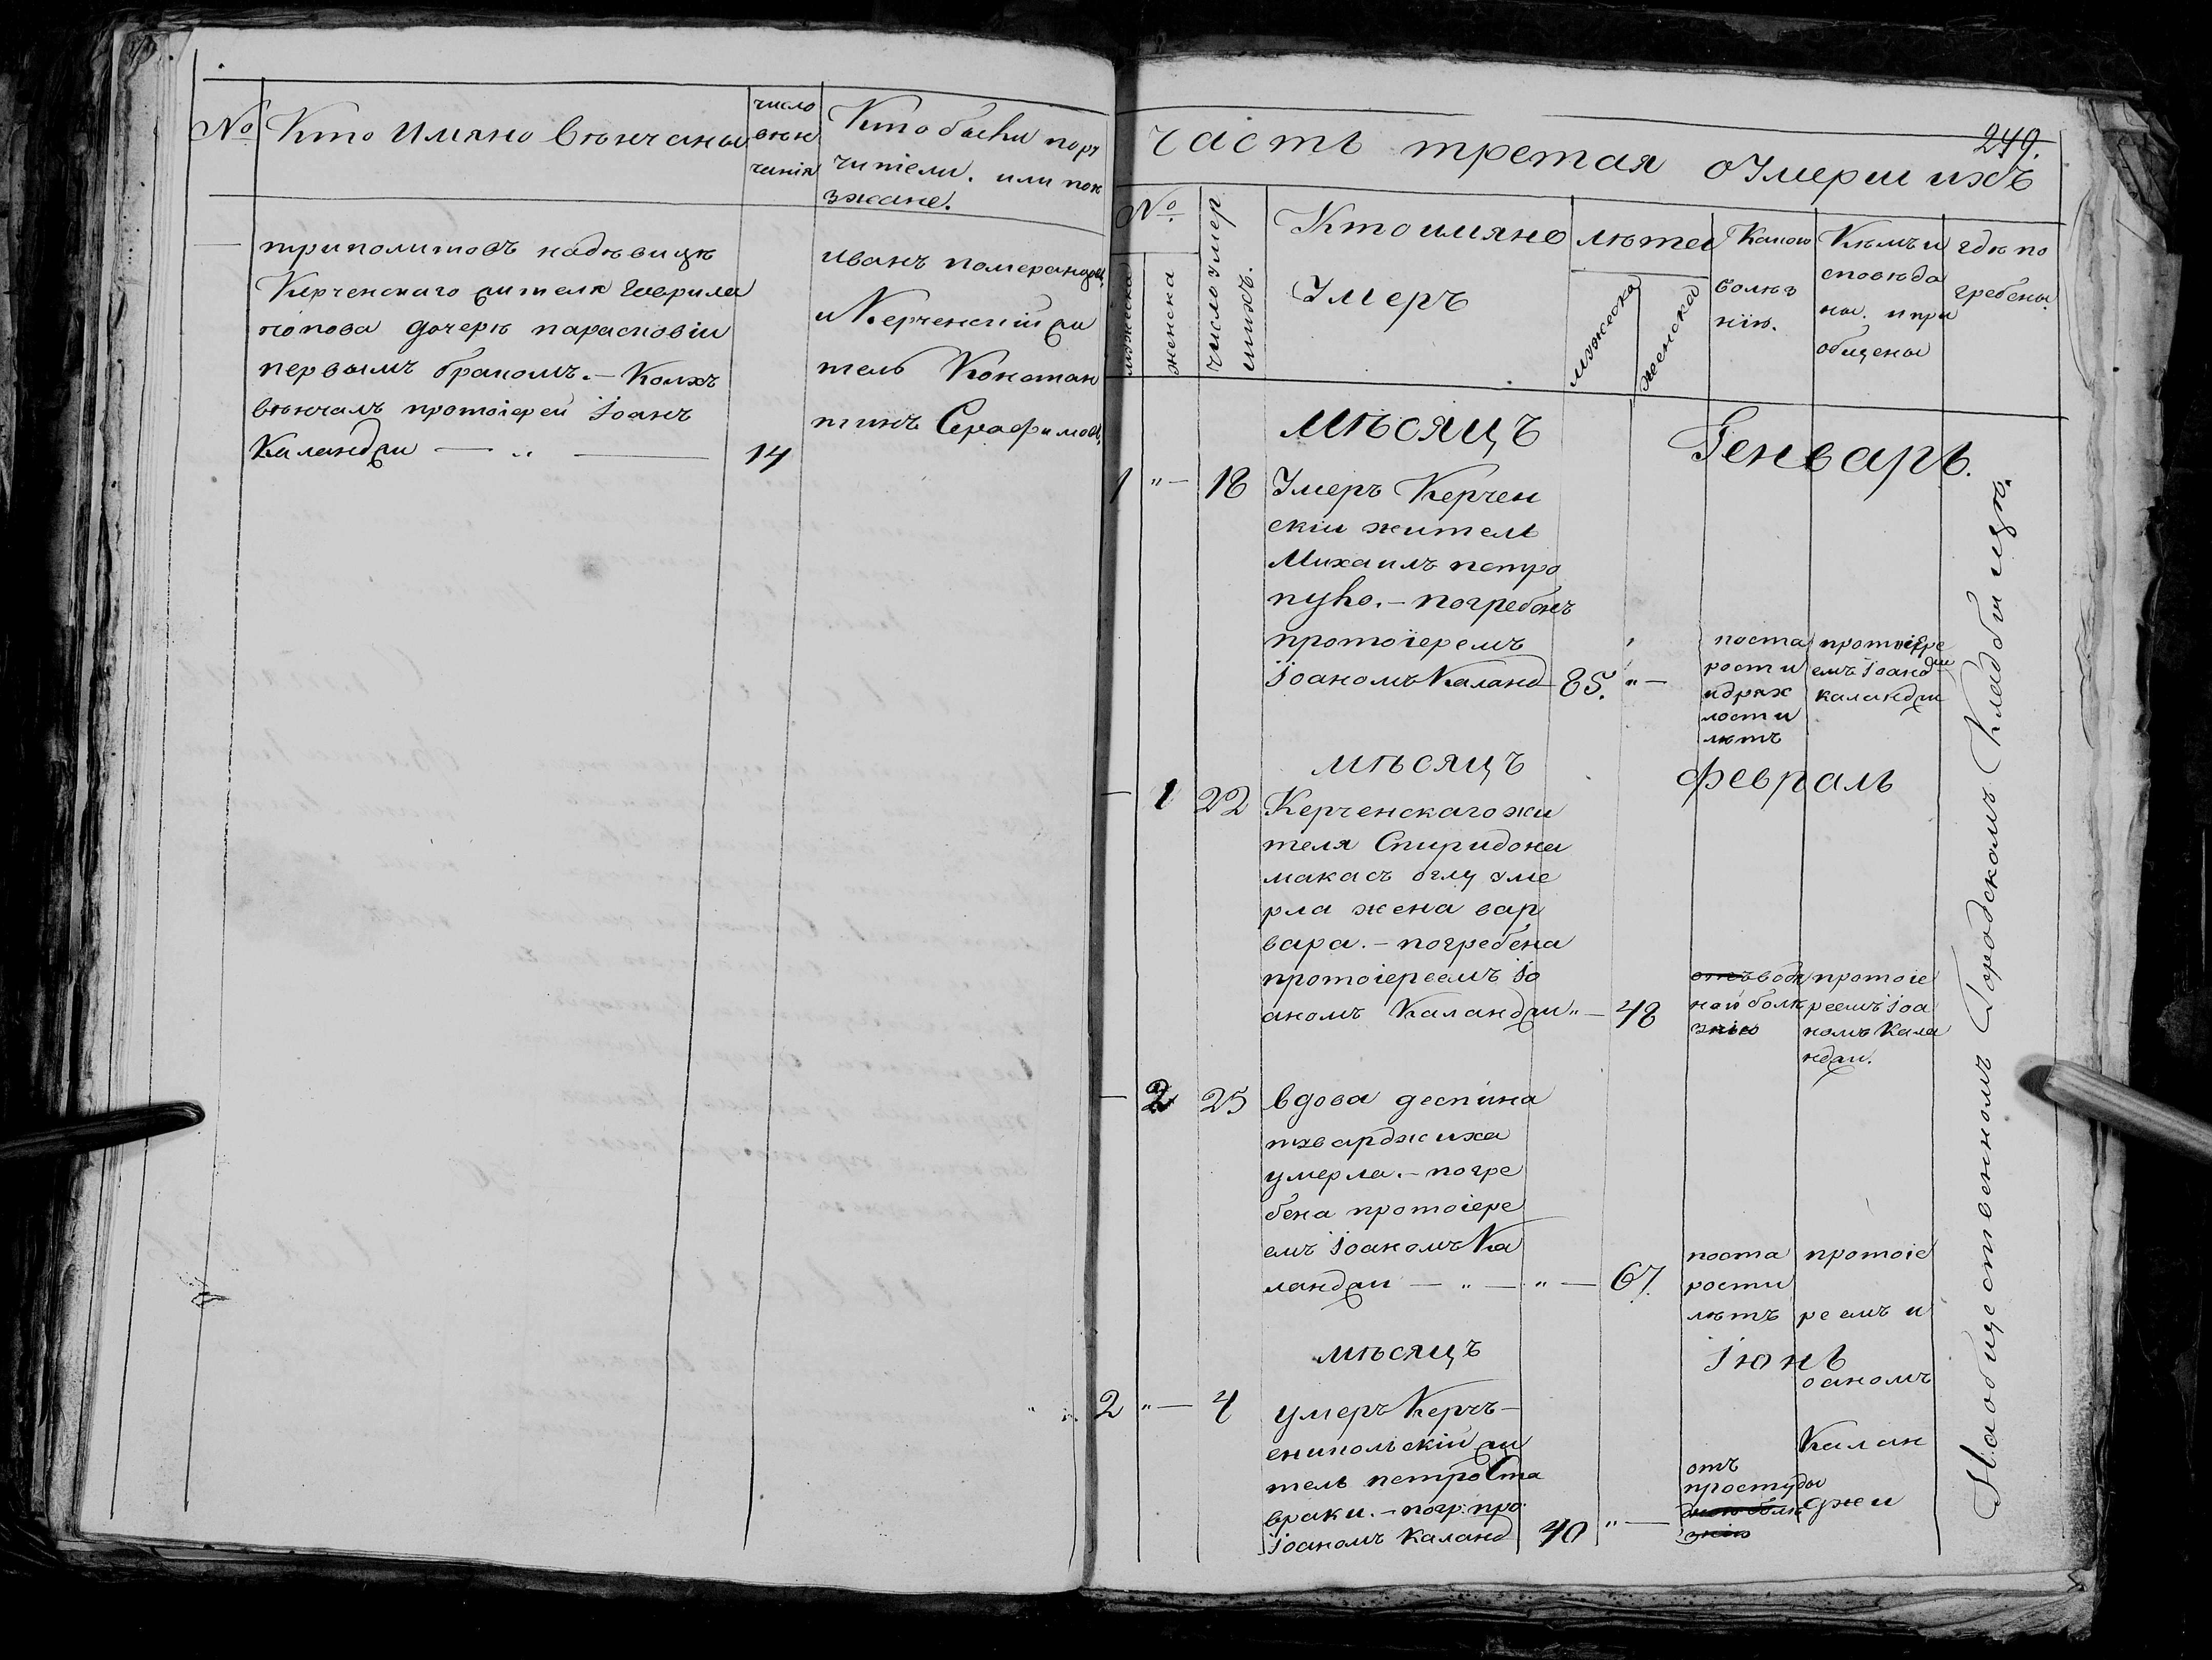 №
Кто Имяно вѣнчаны
число
вѣн
чанія
Кто были пору
чители. или пое
зжане.
триполитовъ надѣвицѣ
Керченскаго жителя Гаврила
попова дочерѣ парасповіи
первымъ бракомъ. – Коихъ
вѣнчалъ протоіерей Іоанъ
Каланджи — „ — 14
иванъ померанцов
и Керченскій жи
тель Констан
тинъ Серафимовъ
249.
часть третая оУмершихъ
№
мужеска
женска
число умер
шихъ.
Кто имяно
Умеръ
лѣта
мужеска
женска
Какою
болѣз
нію.
Кѣмъ и
сповѣда
ны. и при
общены
гдѣ по
гребены
мѣсяцъ Генварь.
1 „ — 18 Умеръ Керчен
скіи житель
Михаилъ петро
пуло. – погребенъ
протоіеремъ
Іоаномъ Каланд 85. „ —
поста
рости
идрях
лости
лѣтъ
протоіере
емъ Іоано
каланджи
мѣсяцъ февраль
— 1 22 Керченскаго жи
теля Спиридона
макасъ оглу уме
рла жена вар
вара. – погребена
протоіереемъ Іо
аномъ Каланджи „ — 48
отъ водя
ной болѣ
знію
протоіе
реемъ Іоа
номъ Кала
нджи.
— 2 25 вдова деспина
тхварджиха
умерла. – погре
бена протоіере
емъ Іоаномъ Ка
ланджи — „ — „ — 67.
поста
рости
лѣтъ
протоіе
реемъ и
мѣсяцъ Іюнь
оаномъ
2 „ — 4 умеръ Керчъ –
еникольскій жи
тель петръ Ста
враки. – погр: про:
Іоаномъ Каланд 40 „ —
отъ
простуды
болѣ
знію
Калан
джи
Наобщественномъ Городскомъ Кладбищѣ.